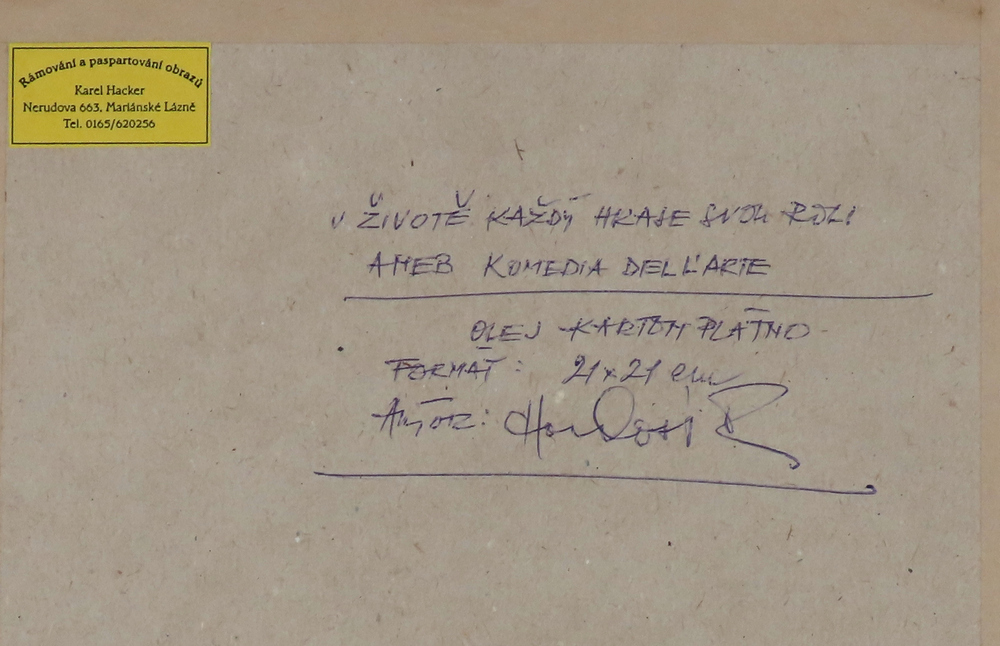 Rámování a paspartování obrazů
Karel Hacker
Nerudova 663, Mariánské Lázně
Tel. 0165/620256
V ŽIVOTĚ KAŽDÝ HRAJE SVOU ROLI
ANEB KOMEDIA DELL'ARTE
OLEJ KARTON PLÁTNO
FORMÁT: 21x21 cm
AUTOR: